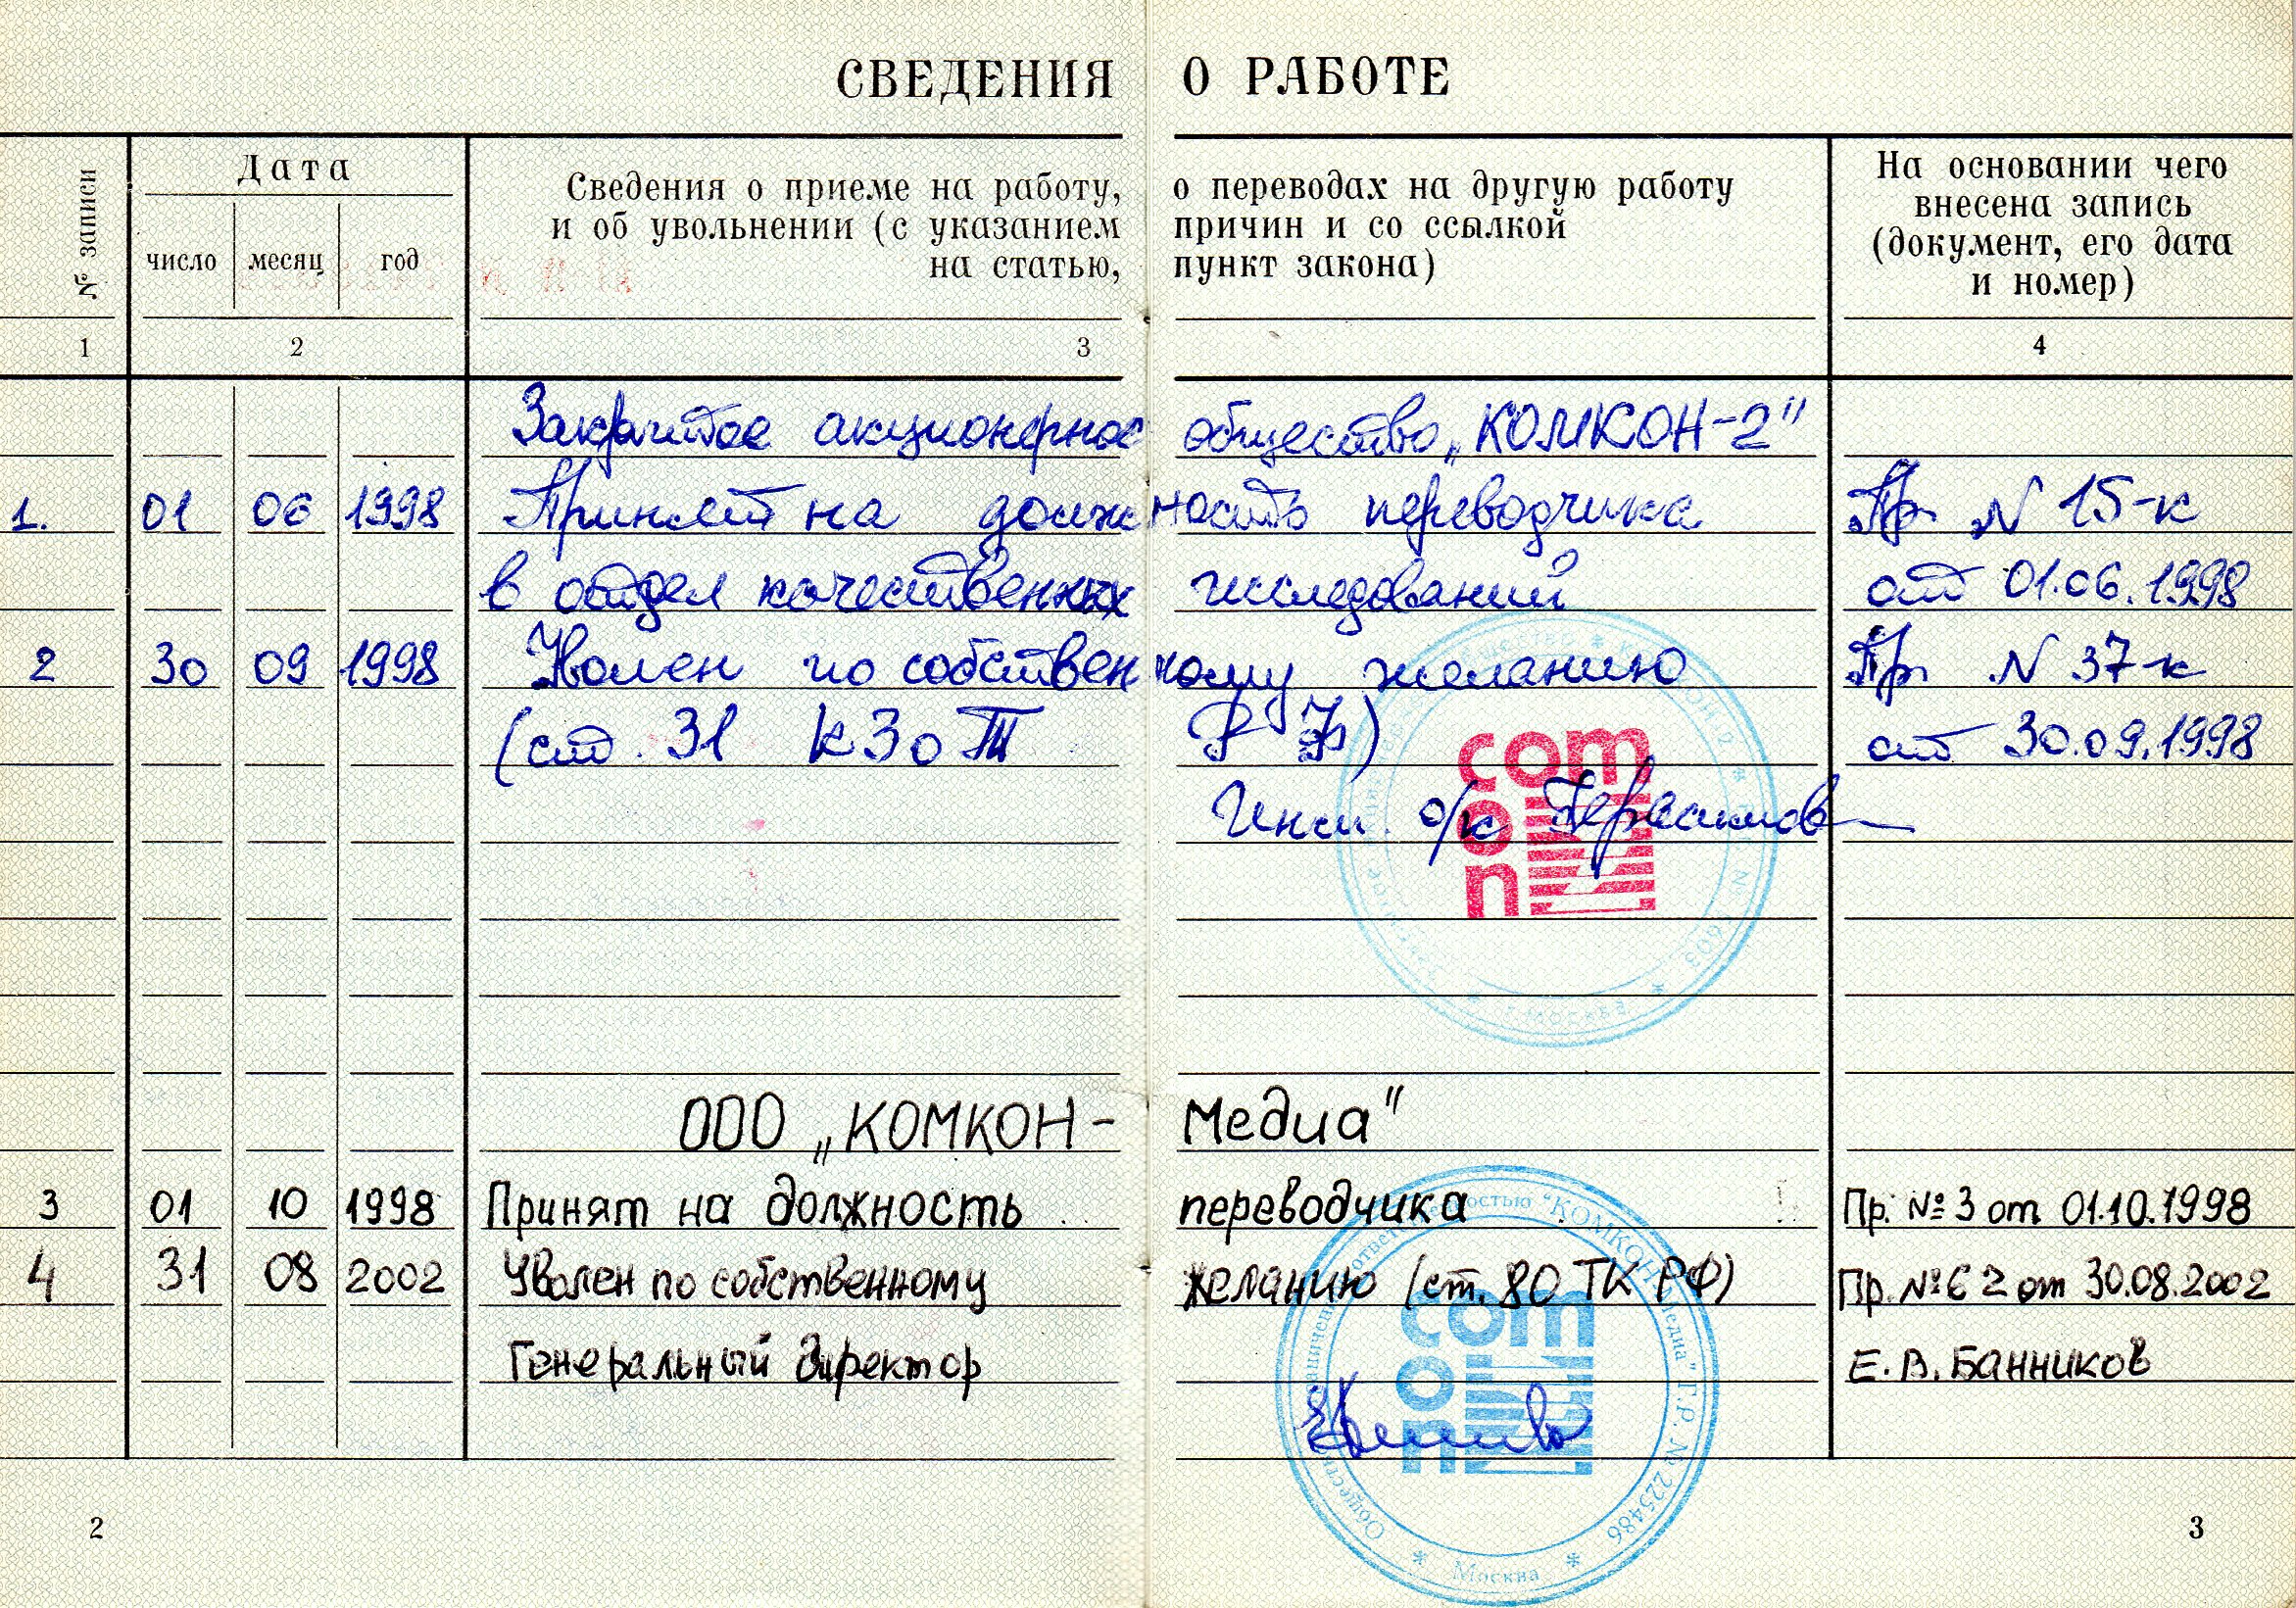 СВЕДЕНИЯ О РАБОТЕ
№ записи
Дата
число месяц год
Сведения о приеме на работу, о переводах на другую работу
и об увольнении (с указанием причин и со ссылкой
на статью, пункт закона)
На основании чего
внесена запись
(документ, его дата
и номер)
1 2 3 4
Закрытое акционерное общество „КОМКОН-2"
1. 01 06 1998 Принят на должность переводчика Пр N 15-к
в отдел качественных исследований от 01.06.1998
2 30 09 1998 Уволен по собственному желанию Пр N 37-к
(ст. 31 КЗоТ РФ) от 30.09.1998
Инсп. о/к Герасимов
com
con
г. Москва
ООО „КОМКОН- Медиа"
3 01 10 1998 Принят на должность переводчика Пр. № 3 от 01.10.1998
4 31 08 2002 Уволен по собственному желанию (ст. 80 ТК РФ) Пр. №62 от 30.08.2002
Генеральный директор Е.В. Банников
Общество с ограниченной ответственностью "КОМКОН-Медиа" Г.Р. № 225486
* Москва *
com
con
2
3